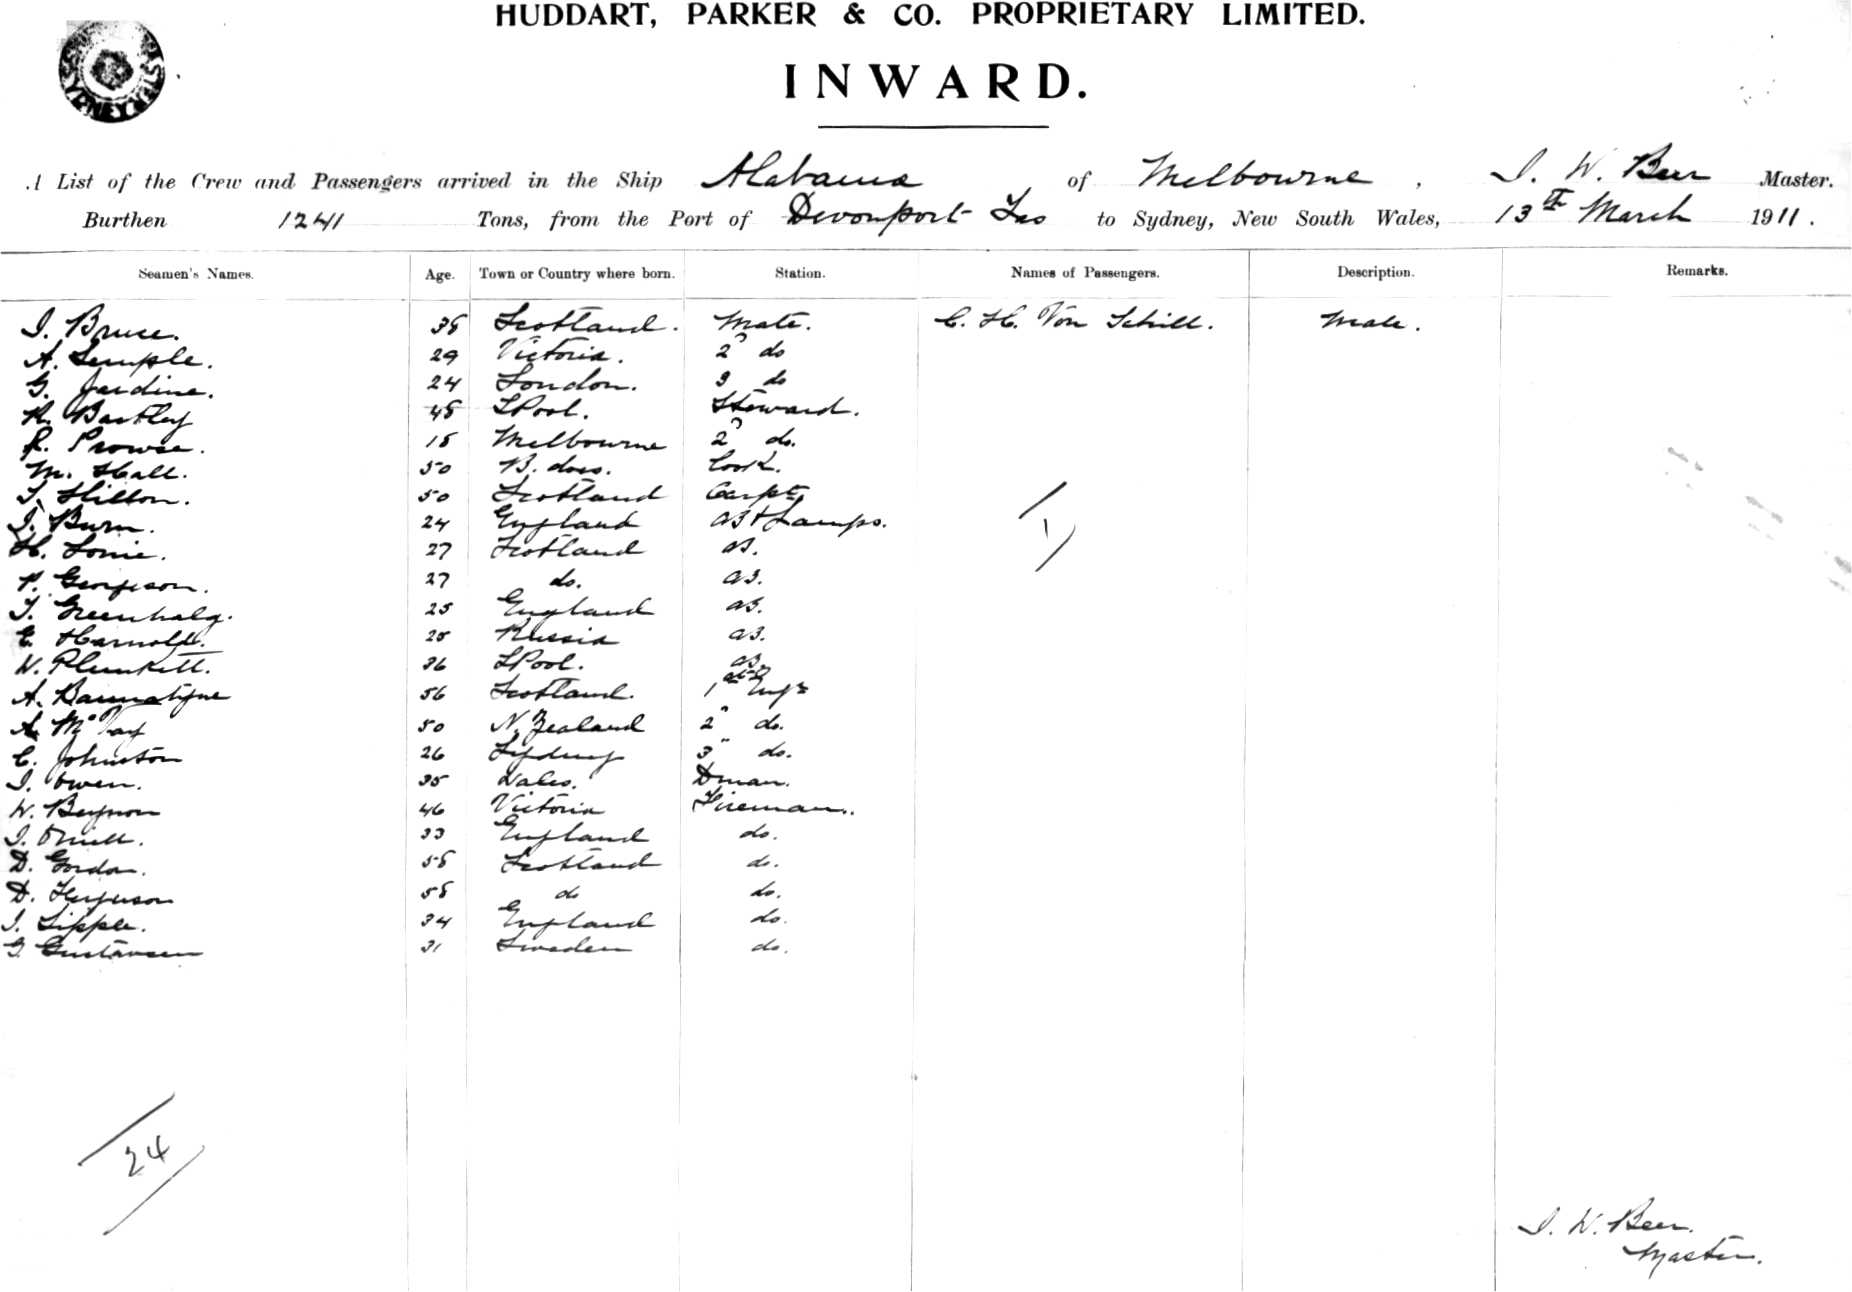 HUDDART, PARKER & CO. PROPRIETARY LIMITED.
INWARD.
SYDNEY
A List of the Crew and Passengers arrived in the Ship Alabama of Melbourne, J. W. Beer Master.
Burthen 1241 Tons, from the Port of Devonport Tas to Sydney, New South Wales, 13th March 1911.
Seamen's Names. Age. Town or Country where born. Station. Names of Passengers. Description. Remarks.
J. Bruce. 38 Scotland. Mate. C. H. Von Schill. Male.
A. Semple. 29 Victoria. 2" do
G. Jardine. 24 London. 3 do
R. Bartley 48 LPool. Steward.
R. Prowse. 18 Melbourne 2" do.
M. Hall. 50 B. does. Cook.
J. Hilton. 50 Scotland Carpt
J. Burn. 24 England AB & Lamps.
H. Lonie. 27 Scotland AB.
P. Georgeson. 27 do. AB.
T. Greenhalg. 25 England AB.
E. Harnold. 28 Russia AB.
W. Plunkett. 36 LPool. AB.
A. Bannatyne 56 Scotland. 1st Engr
A. McVay 50 N. Zealand 2" do.
C. Johnston 26 Sydney 3" do.
J. Owen. 35 Wales. Dman.
W. Beynon 46 Victoria Fireman.
J. 33 England do.
D. Gordon. 58 Scotland do.
D. Ferguson 58 do do.
J. Sipple. 34 England do.
G. Gustavsen 31 Sweden do.
1
24
J. W. Beer.
Master.